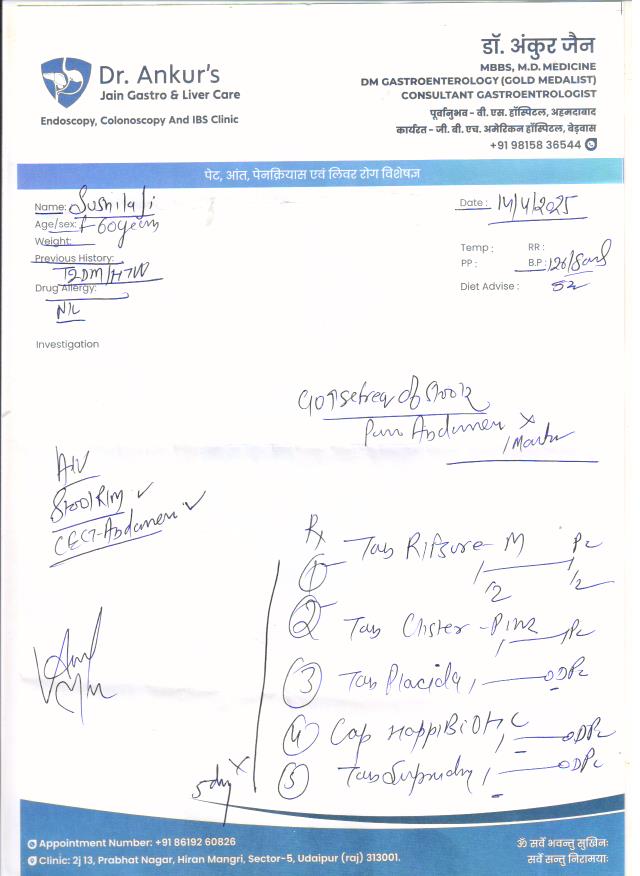 डॉ. अंकुर जैन
MBBS, M.D. MEDICINE
DM GASTROENTEROLOGY (GOLD MEDALIST)
CONSULTANT GASTROENTROLOGIST
पूर्वानुभव - वी. एस. हॉस्पिटल, अहमदाबाद
कार्यरत - जी. बी. एच. अमेरिकन हॉस्पिटल, बेड़वास
+91 98158 36544
Dr. Ankur's
Jain Gastro & Liver Care
Endoscopy, Colonoscopy And IBS Clinic
पेट, आंत, पेनक्रियास एवं लिवर रोग विशेषज्ञ
Name: Sushila Ji
Date : 14/4/2025
Age/sex: F-60year
Weight:
Previous History:
T2DM/HTN
Drug Allergy:
NIL
Temp : RR :
PP : B.P :
Diet Advise :
Investigation
of Stool
Pain Abdomen x
1 Month
Adv
Stool R/M ✓
CECT-Abdomen ✓
Rx
① Tab Rifsure-M
1/2 1/2
② Tab Clister
③ Tab Placida 1 OD
④ Cap HappiBiotic 1 OD
⑤ Tab 1 OD
5 day x
Appointment Number: +91 86192 60826
Clinic: 2j 13, Prabhat Nagar, Hiran Mangri, Sector-5, Udaipur (raj) 313001.
ॐ सर्वे भवन्तु सुखिनः
सर्वे सन्तु निरामयाः